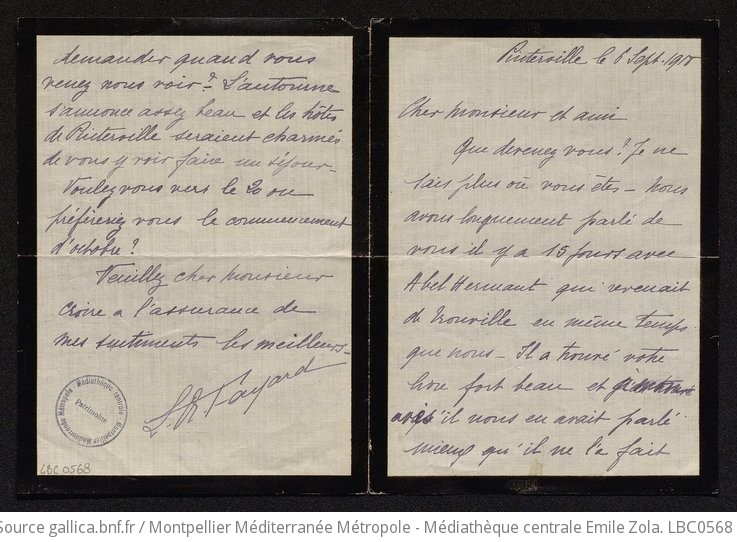 Pinterville le 6 Sept. 191
Cher Monsieur et ami
Que devenez vous? Je ne
sais plus où vous êtes – Nous
avons longuement parlé de
vous il y a 15 jours avec
Abel Hermant qui revenait
de Trouville en même temps
que nous – Il a trouvé votre
livre fort beau et
qu'il nous en avait parlé
mieux qu'il ne l'a fait
demander quand vous
venez nous voir? L'automne
s'annonce assez beau et les hôtes
de Pinterville seraient charmés
de vous y voir faire un séjour –
Voulez vous vers le 20 ou
préfèreriez vous le commencement
d'octobre?
Veuillez cher Monsieur
croire a l'assurance de
mes sentiments les meilleurs –
Fayard
Montpellier Méditerranée Métropole - Médiathèque centrale
Patrimoine
LBC 0568
Source gallica.bnf.fr / Montpellier Méditerranée Métropole - Médiathèque centrale Emile Zola. LBC0568